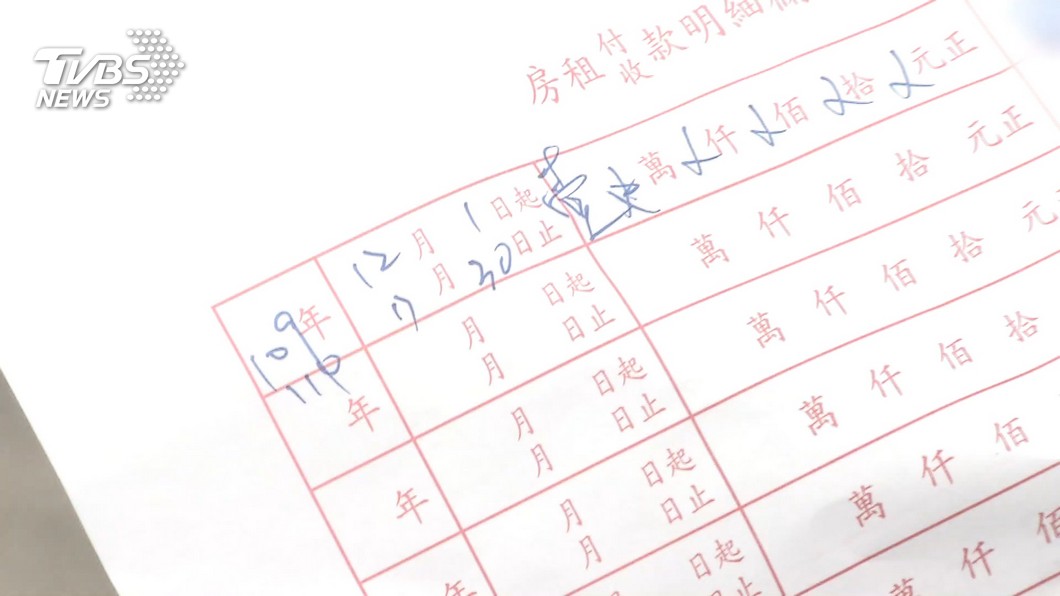 TVBS
NEWS
房租付收款明細
109年 12月1日起 壹 萬 仟 佰 拾 元正
110 11月30日止
年 月 日起 萬 仟 佰 拾 元正
月 日止
年 月 日起 萬 仟 佰 拾 元
月 日止
年 月 日起 萬 仟 佰 拾
月 日止
年 日起 萬 仟 佰
萬 仟 佰